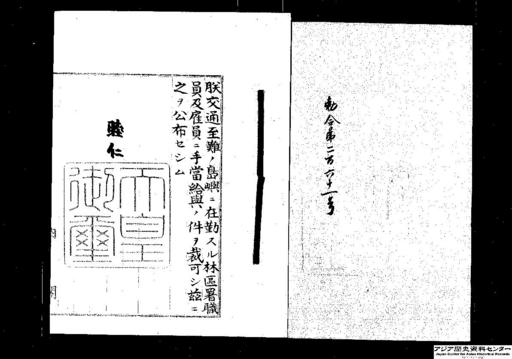 勅令第二百六十一号
朕交通至難ノ島嶼ニ在勤スル林區署職
員及雇員ニ手當給與ノ件ヲ裁可シ茲ニ
之ヲ公布セシム
睦仁
天皇
御璽
内
閣
アジア歴史資料センター
Japan Center for Asian Historical Records